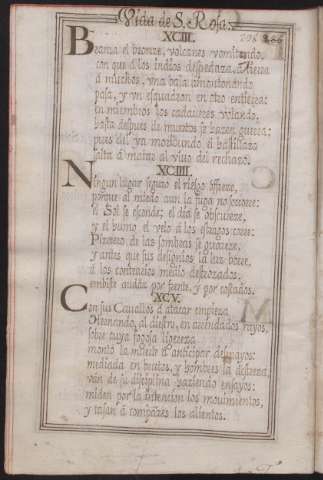 Vida de S. Rosa.
XCIII.
Brama el bronze, volcanes vomitando,
con que à los Indios despedaza, è hiere
à muchos, vna bala amontonando
passa, y vn esquadron en otro
en miembros los cadaveres volando,
hasta despues de muertos se hazen guerra;
pues del ya moribundo el
salta à matar al vivo del rechazo.
XCIIII.
Ningun lugar seguro el riesgo ofrece,
porque al miedo aun la fuga no socorre:
el Sol se esconde; el dia se obscurece,
y el humo el velo à los estragos corre:
Pizarro de las sombras se guarece,
y antes que sus designios la luz borre,
à los contrarios medio destrozados,
embiste audàz por frente, y por costados.
XCV.
Con sus Cavallos à atacar empieza
Hernando, al diestro, en encendidos rayos,
sobre cuya fogosa ligereza
montò la muerte à anticipar desmayos:
mediada en brutos, y hombres la destreza,
van de su disciplina haziendo ensayos:
miden por la intencion los movimientos,
y tasan à compases los alientos.